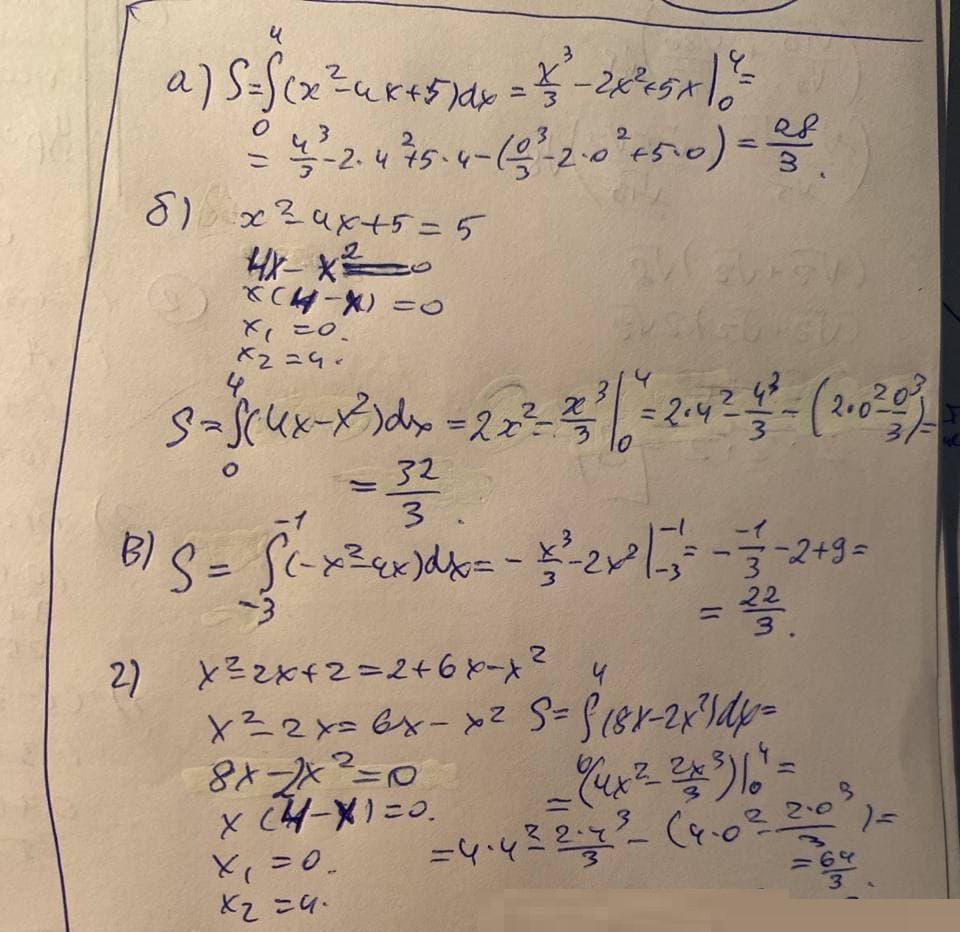 а) S=∫₀⁴(x²-4x+5)dx = x³/3 - 2x²+5x|₀⁴ =
= 4³/3 - 2·4²+5·4-(0³/3-2·0²+5·0) = 28/3.
б) x²-4x+5=5
4x-x²=0
x(4-x)=0
x₁=0.
x₂=4.
S=∫₀⁴(4x-x²)dx = 2x²-x³/3|₀⁴ = 2·4²-4³/3-(2·0²-0³/3)=
= 32/3.
в) S= ∫₋₃⁻¹(-x²-4x)dx = -x³/3-2x²|₋₃⁻¹ = - -1/3 -2+9=
= 22/3.
2) x²-2x+2=2+6x-x²
x²-2x=6x-x² S=∫₀⁴(8x-2x²)dx=
8x-2x²=0 =(4x²-2x³/3)|₀⁴ =
x(4-x)=0. =4·4²-2·4³/3-(4·0²-2·0³/3)=
x₁=0. =64/3.
x₂=4.